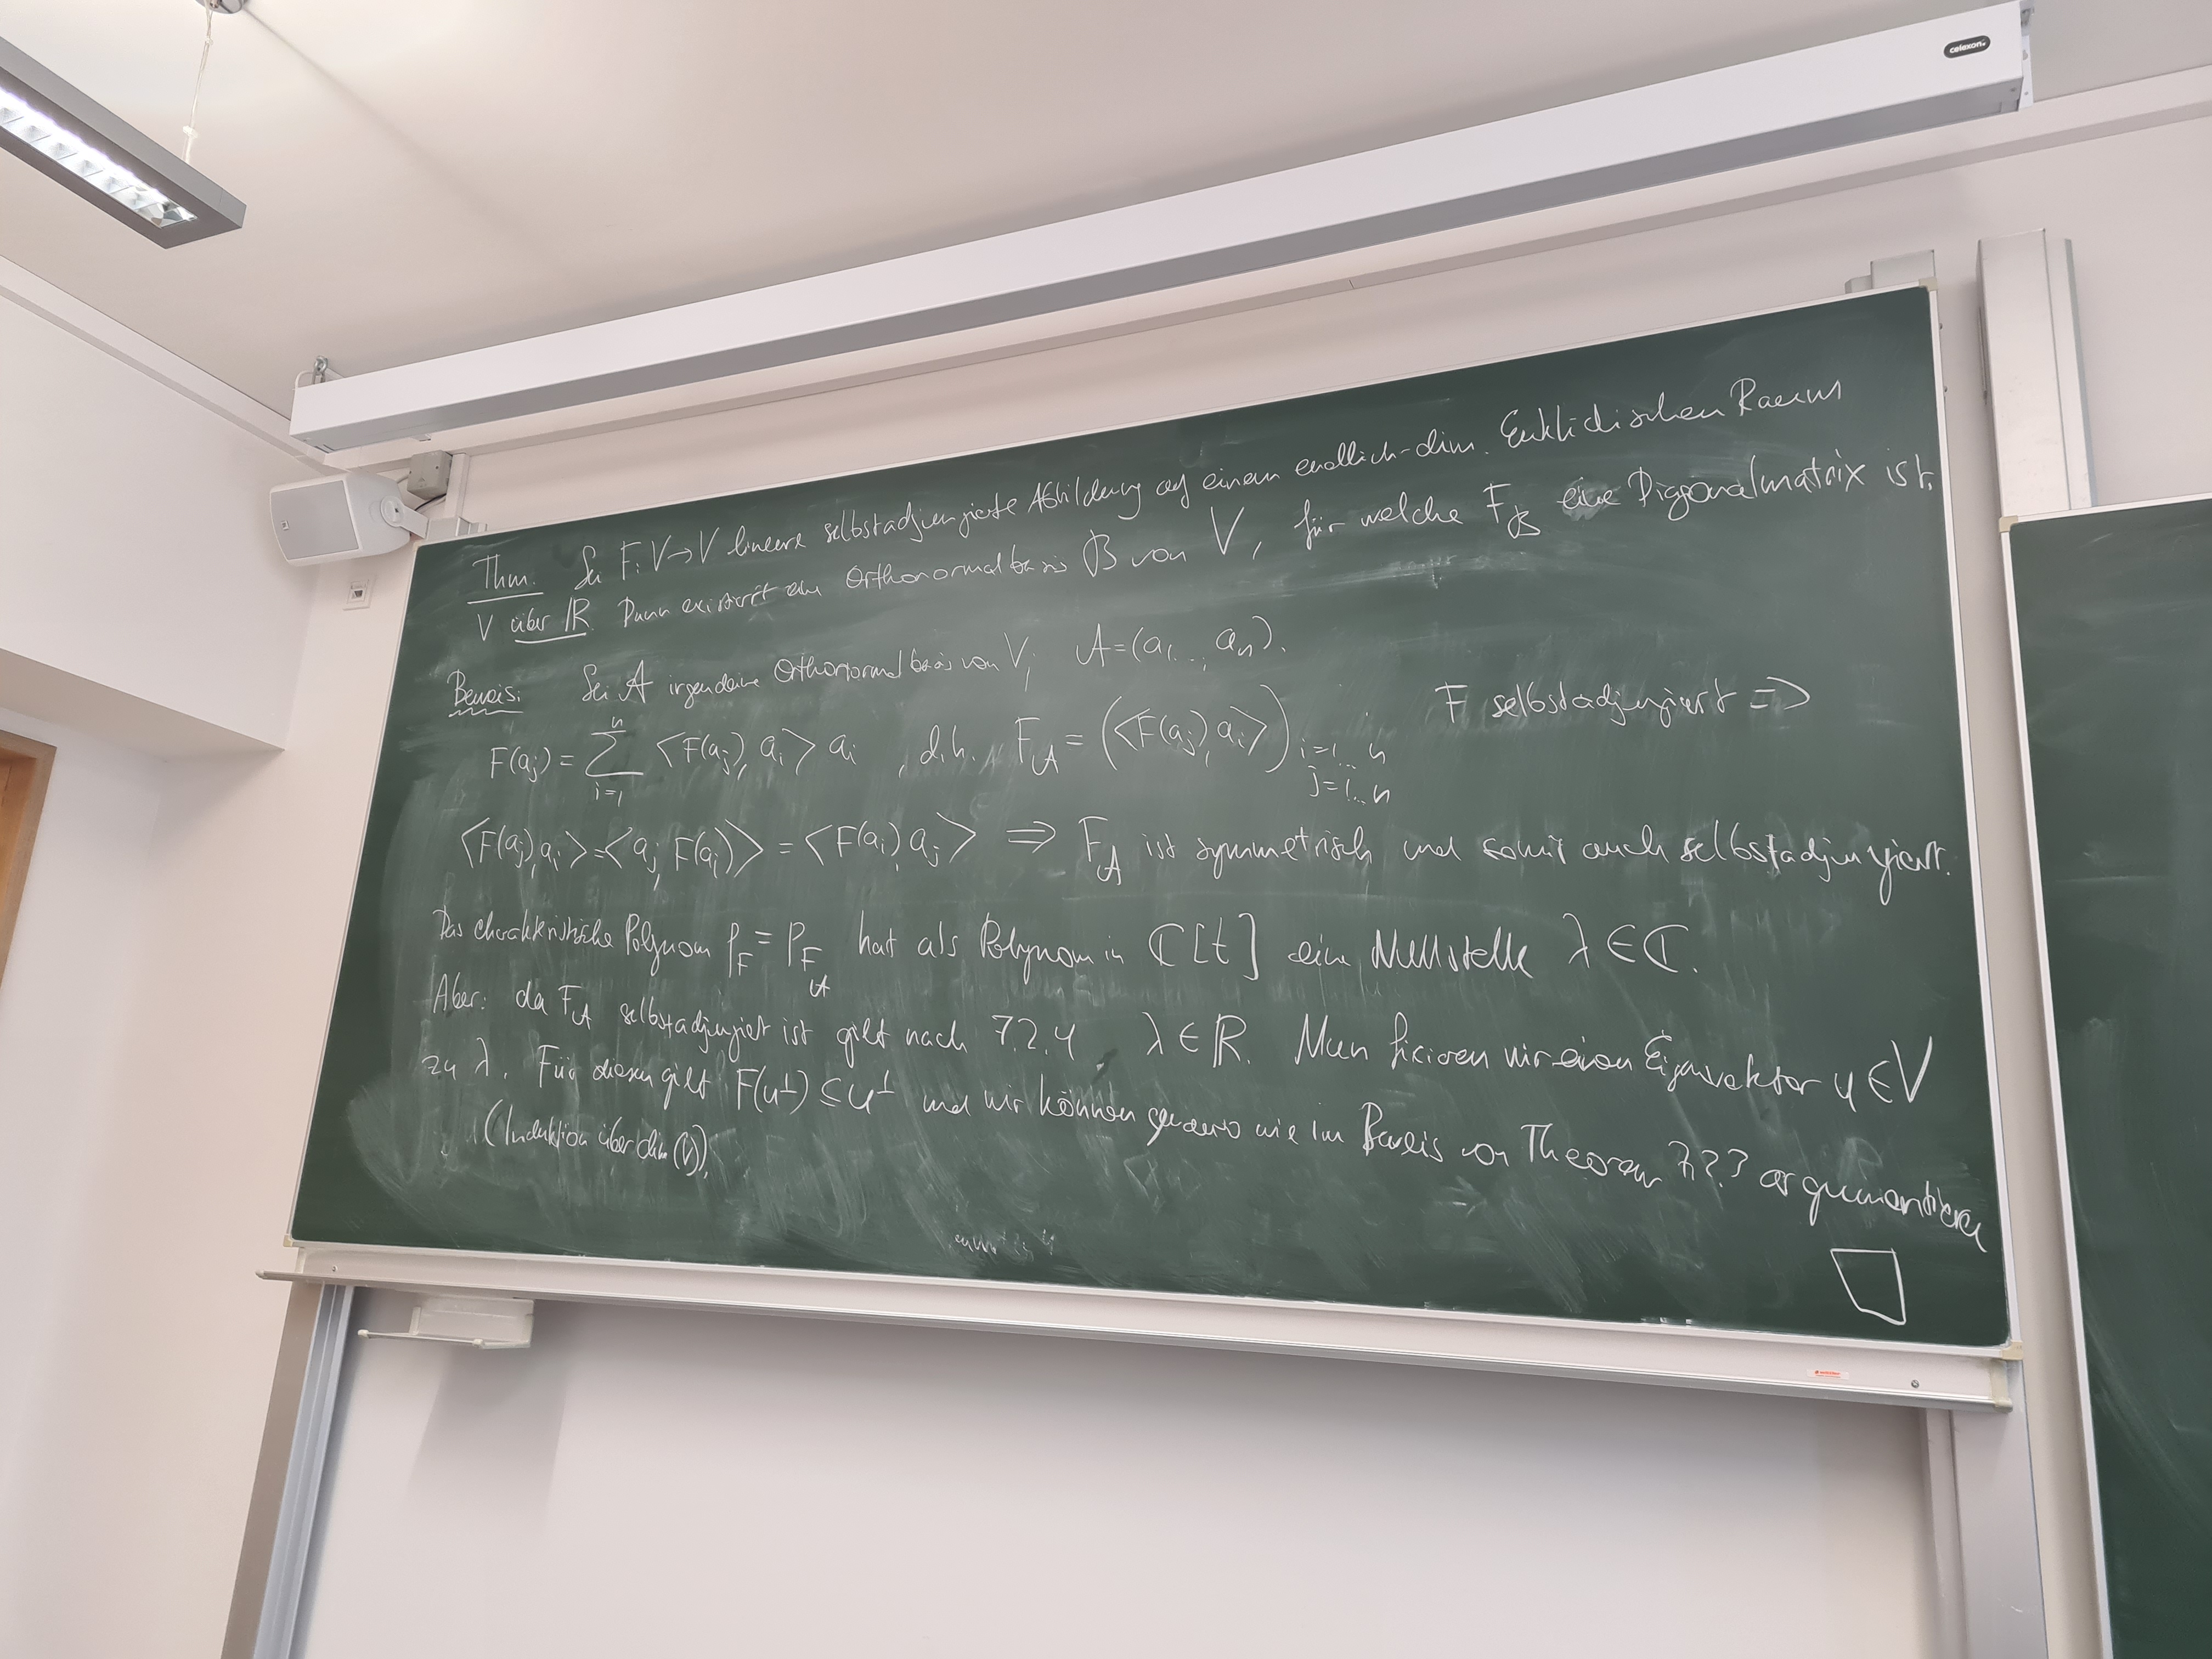 celexon
Thm. Sei F: V→V lineare selbstadjungierte Abbildung auf einem endlich-dim. Euklidischen Raum
V über ℝ. Dann existiert eine Orthonormalbasis ℬ von V, für welche F_ℬ eine Diagonalmatrix ist.
Beweis: Sei 𝒜 irgendeine Orthonormalbasis von V, 𝒜=(a₁..., aₙ).
F(aⱼ) = ∑_{i=1}^{n} <F(aⱼ), aᵢ> aᵢ, d.h. F_𝒜 = (<F(aⱼ), aᵢ>)_{i=1...n, j=1...n} F selbstadjungiert ⇒
<F(aⱼ), aᵢ> = <aⱼ, F(aᵢ)> = <F(aᵢ), aⱼ> ⇒ F_𝒜 ist symmetrisch und somit auch selbstadjungiert.
Das charakteristische Polynom p_F = p_{F_𝒜} hat als Polynom in ℂ[t] eine Nullstelle λ∈ℂ.
Aber: da F_𝒜 selbstadjungiert ist gilt nach 7.2.4 λ∈ℝ. Nun fixieren wir einen Eigenvektor u∈V
zu λ. Für diesen gilt F(u^⊥) ⊆ u^⊥ und wir können genauso wie im Beweis von Theorem 7.?? argumentieren
(Induktion über dim(V)).